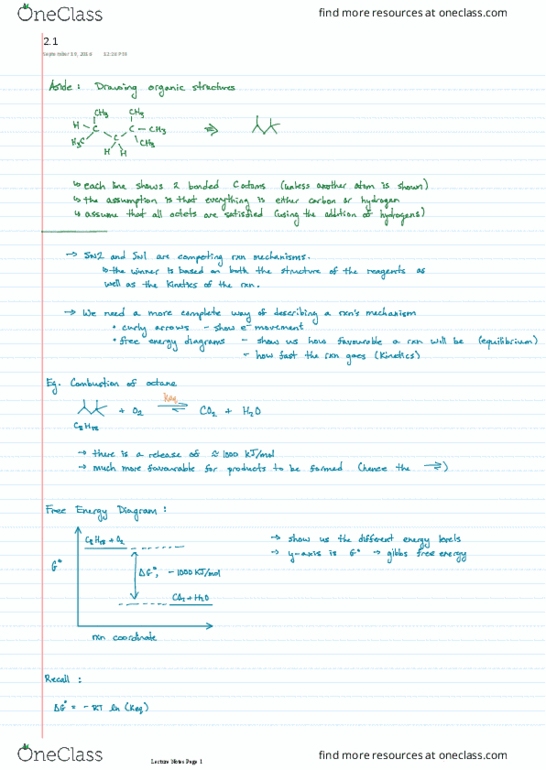 OneClass
find more resources at oneclass.com
2.1
September 19, 2016 12:30 PM
Aside: Drawing organic structures
CH3 CH3
H C C – CH3
H3C C CH3
H H
↳ each line shows 2 bonded C atoms (unless another atom is shown)
↳ the assumption is that everything is either carbon or hydrogen
↳ assume that all octets are satisfied (using the addition of hydrogens)
→ SN2 and SN1 are competing rxn mechanisms.
↳ the winner is based on both the structure of the reagents as
well as the kinetics of the rxn.
→ We need a more complete way of describing a rxn's mechanism
• curly arrows – show e⁻ movement
• free energy diagrams – show us how favourable a rxn will be (equilibrium)
– how fast the rxn goes (kinetics)
Eg. Combustion of octane
+ O2 Keq ⇌ CO2 + H2O
C8H18
→ there is a release of ≈ 1000 KJ/mol
→ much more favourable for products to be formed (hence the ⇌)
Free Energy Diagram:
C8H18 + O2
→ show us the different energy levels
→ y-axis is G° → gibbs free energy
G°
ΔG°, – 1000 KJ/mol
CO2 + H2O
rxn coordinate
Recall:
ΔG° = – RT ln (Keq)
OneClass
Lecture Notes Page 1
find more resources at oneclass.com